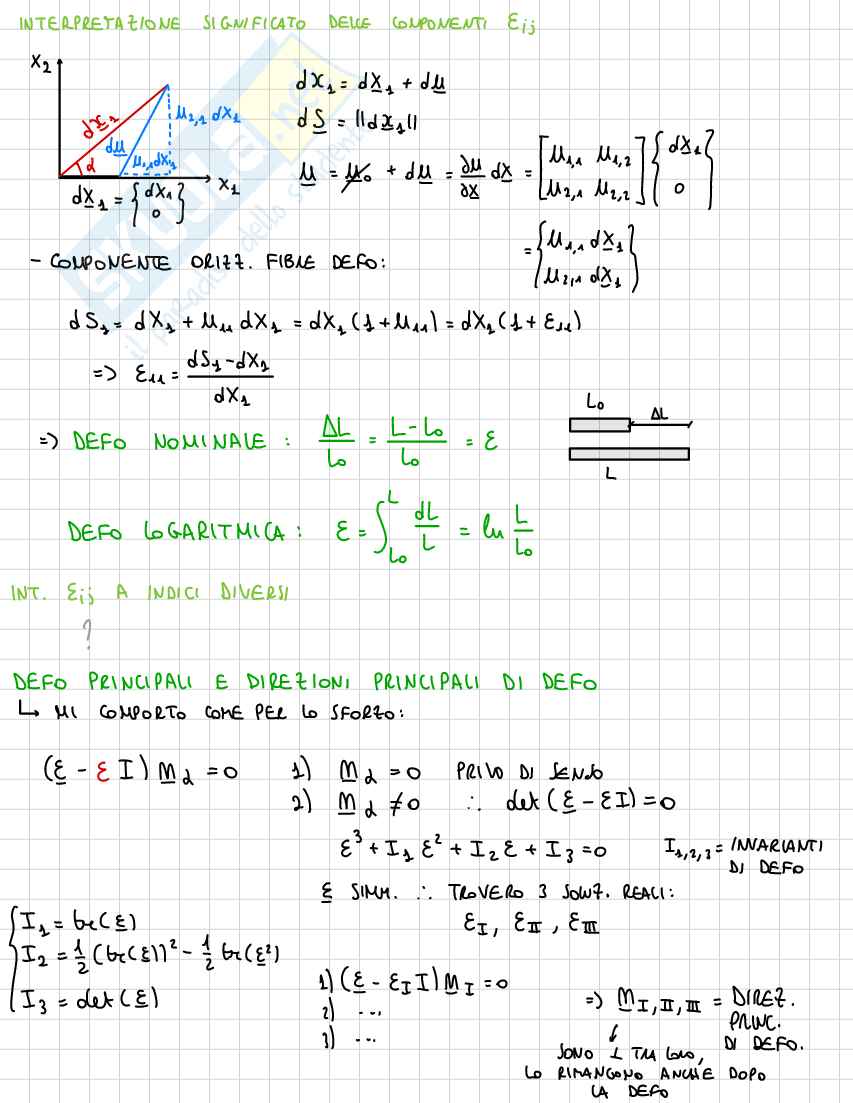 INTERPRETAZIONE SIGNIFICATO DELLE COMPONENTI εij
x2
dx1
du
u2,1 dX1
u1,1 dX1
α
x1
dX1 = { dX1 0 }
dx1 = dX1 + du
dS = ||dx1||
u = u0 + du = ∂u/∂X dX = [ u1,1 u1,2 u2,1 u2,2 ] { dX1 0 }
= { u1,1 dX1 u2,1 dX1 }
- COMPONENTE ORIZZ. FIBRE DEFO:
dS1 = dX1 + u11 dX1 = dX1 (1 + u11) = dX1 (1 + ε11)
=> ε11 = (dS1 - dX1) / dX1
L0
ΔL
L
=> DEFO NOMINALE : ΔL/L0 = (L - L0)/L0 = ε
DEFO LOGARITMICA : ε = ∫L0^L dL/L = ln L/L0
INT. εij A INDICI DIVERSI
?
DEFO PRINCIPALI E DIREZIONI PRINCIPALI DI DEFO
↳ MI COMPORTO COME PER LO SFORZO:
(ε - ε I) mα = 0
1) mα = 0 PRIVO DI SENSO
2) mα ≠ 0 ∴ det (ε - εI) = 0
ε³ + I1 ε² + I2 ε + I3 = 0
I1,2,3 = INVARIANTI
DI DEFO
ε SIMM. ∴ TROVERO 3 SOLUZ. REALI:
εI, εII, εIII
I1 = tr(ε)
I2 = 1/2 (tr(ε))² - 1/2 tr(ε²)
I3 = det(ε)
1) (ε - εI I) mI = 0
2) ...
3) ...
=> mI,II,III = DIREZ.
PRINC.
DI DEFO.
SONO ⊥ TRA LORO,
LO RIMANGONO ANCHE DOPO
LA DEFO
skuola.net
il paradiso dello studente